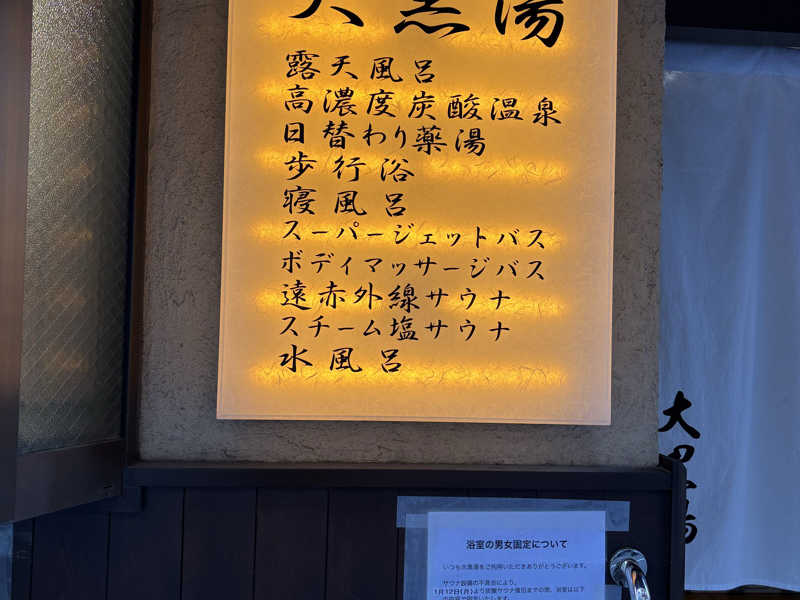 大黒湯
露天風呂
高濃度炭酸温泉
日替わり薬湯
歩行浴
寝風呂
スーパージェットバス
ボディマッサージバス
遠赤外線サウナ
スチーム塩サウナ
水風呂
大黒湯
浴室の男女固定について
いつも大黒湯をご利用いただきありがとうございます。
サウナ設備の不具合により、
1月12日(月)より炭酸サウナ復旧までの間、浴室は以下
の内容で固定いたします。